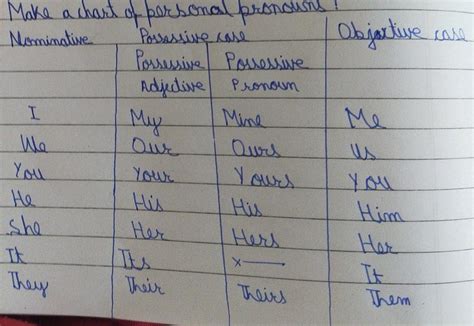 Make a chart of personal pronouns!
Nominative Possessive case Objective case
Possessive Possessive
Adjective Pronoun
I My Mine Me
We Our Ours Us
You Your Yours You
He His His Him
She Her Hers Her
It Its x It
They Their Theirs Them